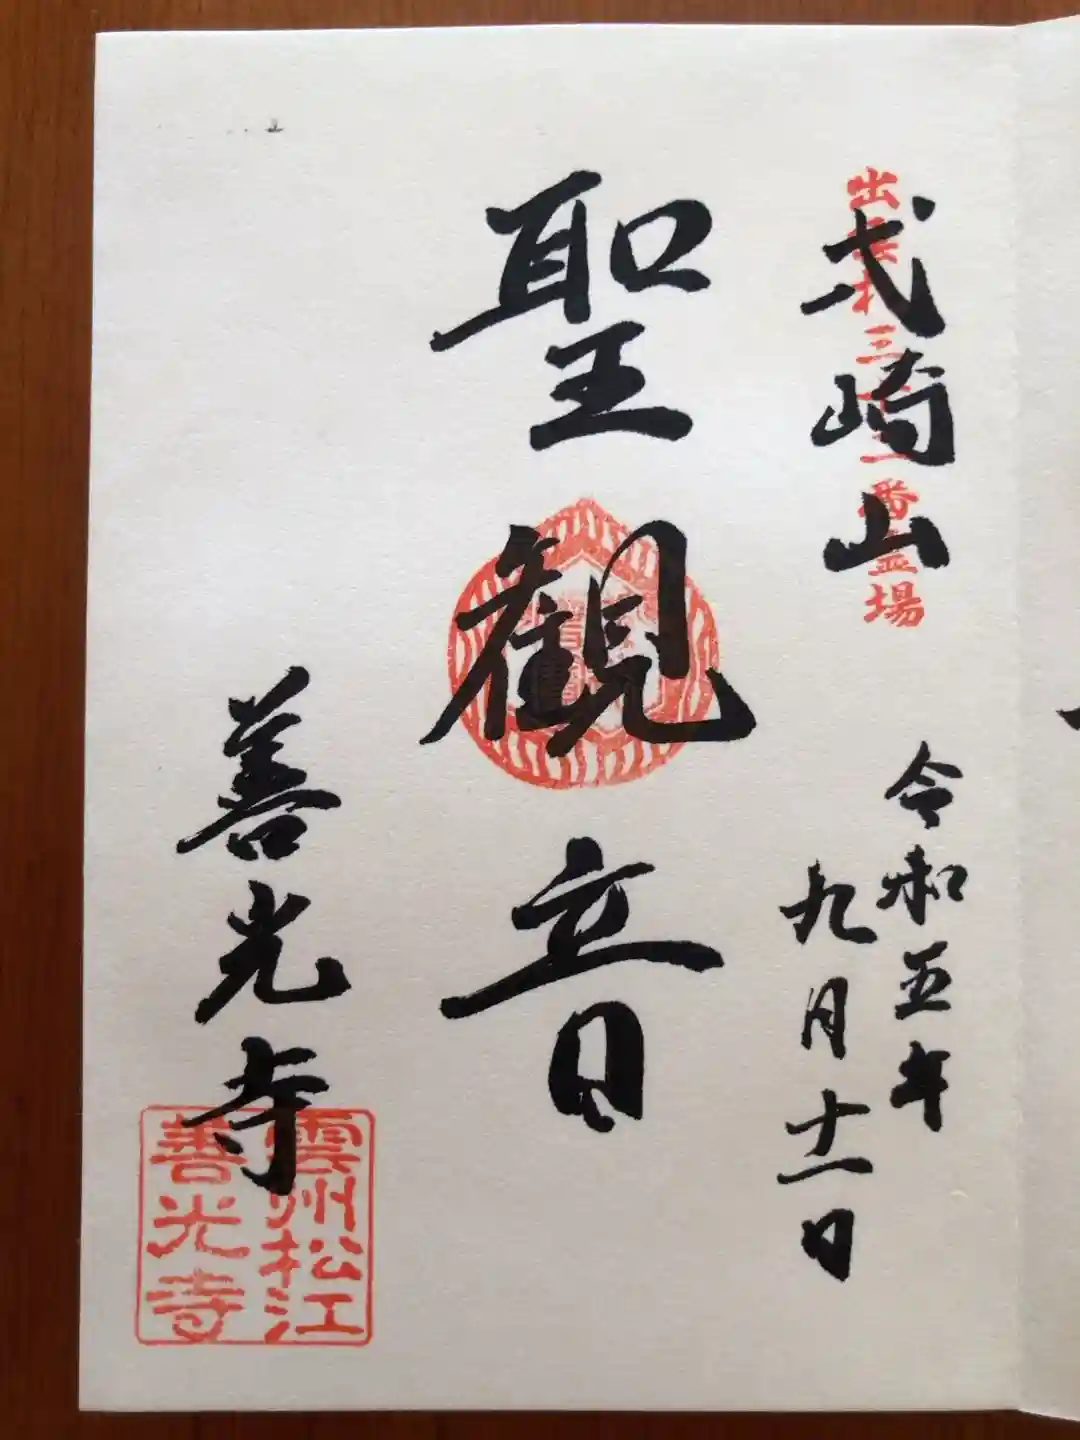 出雲札三 番霊場
弌崎山
令和五年
九月十一日
聖観音
善光寺
雲州松江
善光寺